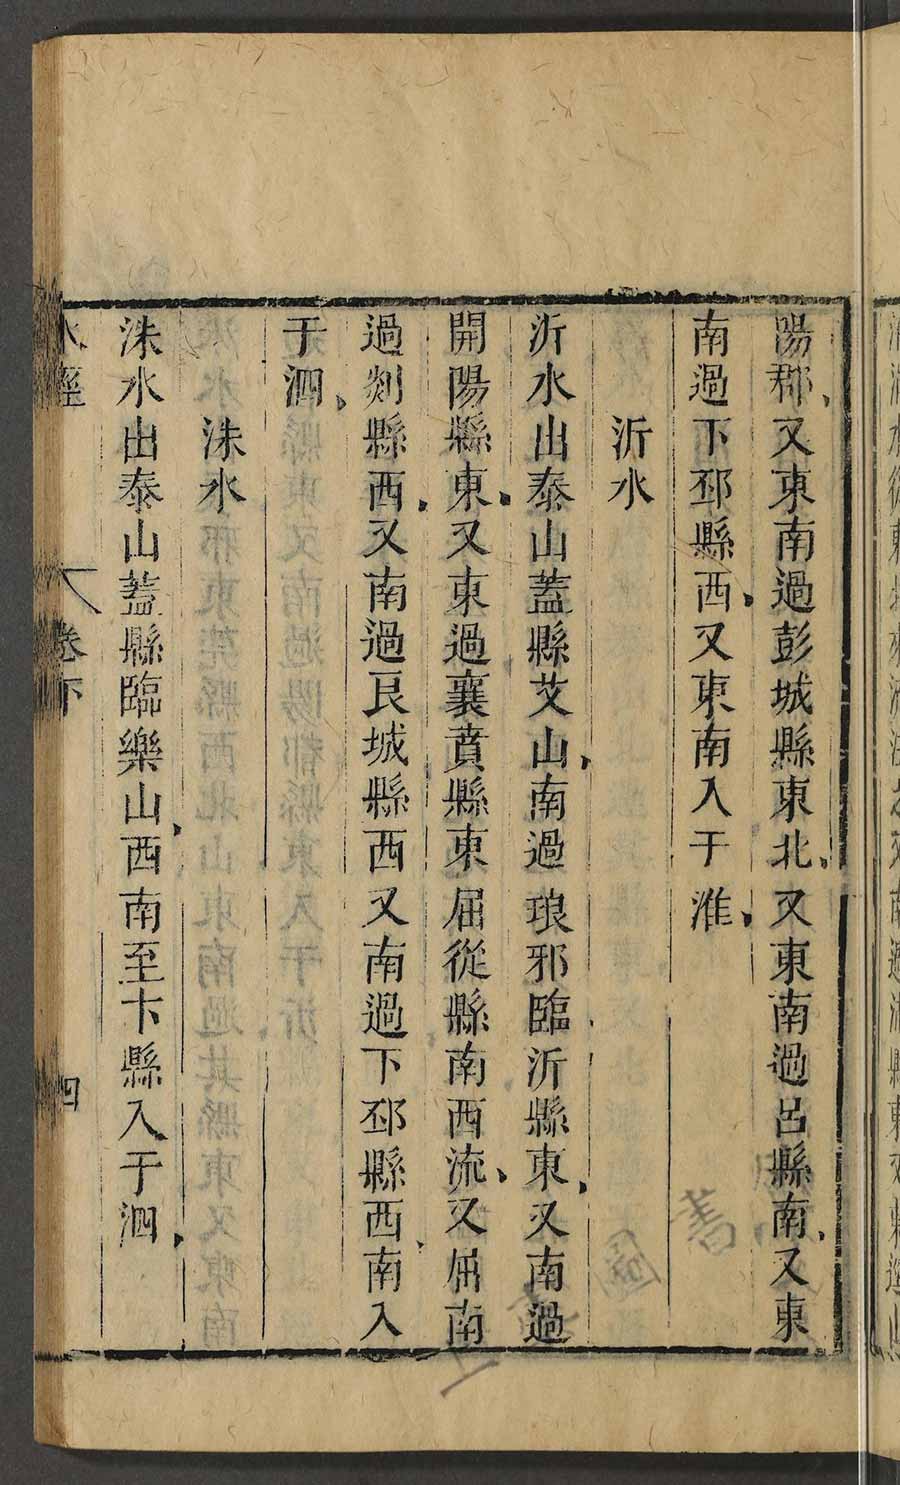 陽郡又東南過彭城縣東北又東南過呂縣南又東
南過下邳縣西又東南入于淮
沂水
沂水出泰山蓋縣艾山南過琅邪臨沂縣東又南過
開陽縣東又東過襄賁縣東屈從縣南西流又屈南
過郯縣西又南過良城縣西又南過下邳縣西南入
于泗
洙水
洙水出泰山蓋縣臨樂山西南至卞縣入于泗
水經
卷下
四